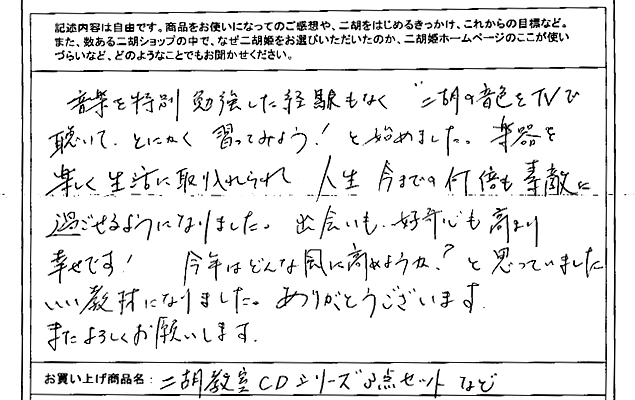 記述内容は自由です。商品をお使いになってのご感想や、二胡をはじめるきっかけ、これからの目標など。
また、数ある二胡ショップの中で、なぜ二胡姫をお選びいただいたのか、二胡姫ホームページのここが使い
づらいなど、どのようなことでもお聞かせください。
音楽を特別 勉強した経験もなく “二胡の音色をTVで
聴いて、とにかく 習ってみよう!と始めました。 楽器を
楽しく 生活に取り入れられて 人生 今までの何倍も素敵に
過ごせるようになりました。 出会いも、好奇心も高まり
幸せです! 今年はどんな風に高めようか、?と思っていました
いい教材になりました。ありがとうございます。
またよろしくお願いします。
お買い上げ商品名: 二胡教室CDシリーズ3点セット など